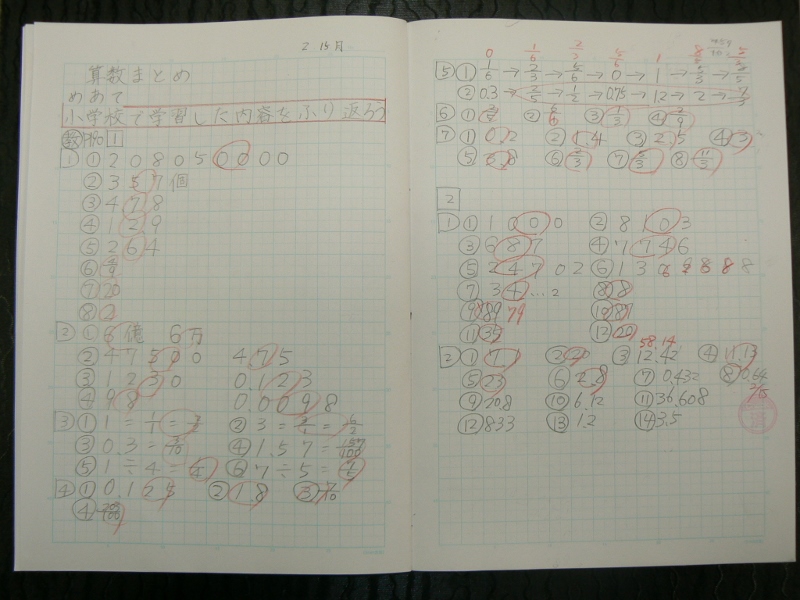 2 15月
算数まとめ
めあて
小学校で学習した内容をふり返ろう
数 1
1 ① 208050000
② 357個
③ 478
④ 129
⑤ 264
⑥
⑦ 20
⑧ 2
2 ① 6億 6万
② 47500 475
③ 1230 0.123
④ 98 0.0098
3 ① 1=1/1=2/2 ② 3=3/1=6/2
③ 0.3=3/10 ④ 1.57=157/100
⑤ 1÷4=1/4 ⑥ 7÷5=7/5
4 ① 0.125 ② 1.8 ③ 7/10
④
0 1/6 2/3 5/6 1
5 ① 1/6→2/3→5/6→0→1→
② 0.3→2/5→1/2→0.75→1.2→2→7/3
6 ① ② ③ 1/3 ④ 2/9
7 ① 0.2 ② 1.4 ③ 2.5 ④ 3
⑤ ⑥ 2/3 ⑦ 5/3 ⑧ 11/5
2
1 ① 1000 ② 8103
③ 687 ④ 7746
⑤ 24702 ⑥
⑦ 34…2 ⑧ 8
⑨ 89 79 ⑩ 87
⑪ 35 ⑫ 29
58.14
2 ① ② 20 ③ 12.42 ④ 11.13
⑤ 23 ⑥ 2.8 ⑦ 0.432 ⑧ 0.64
⑨ 70.8 ⑩ 6.12 ⑪ 36.608
⑫ 833 ⑬ 12 ⑭ 3.5